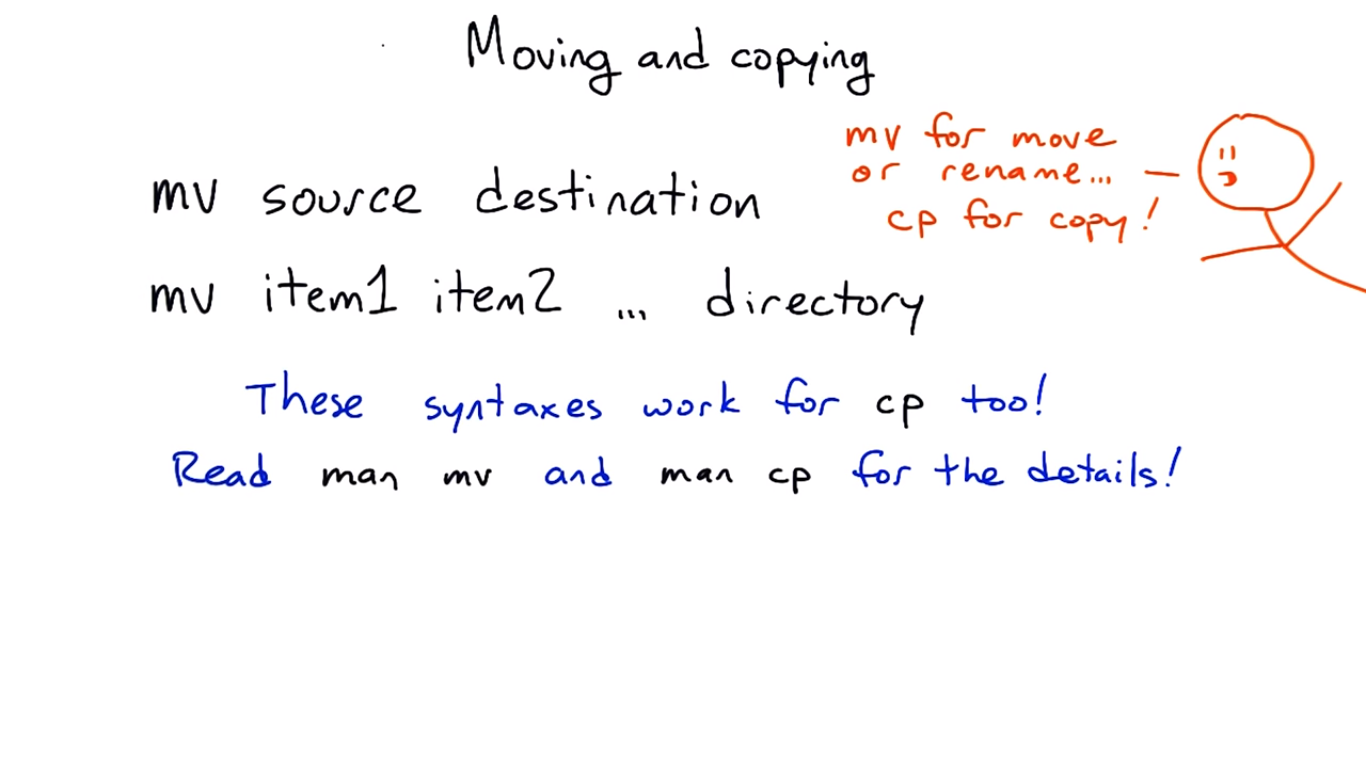 Moving and copying
mv for move
or rename...
cp for copy!
mv source destination
mv item1 item2 ... directory
These syntaxes work for cp too!
Read man mv and man cp for the details!